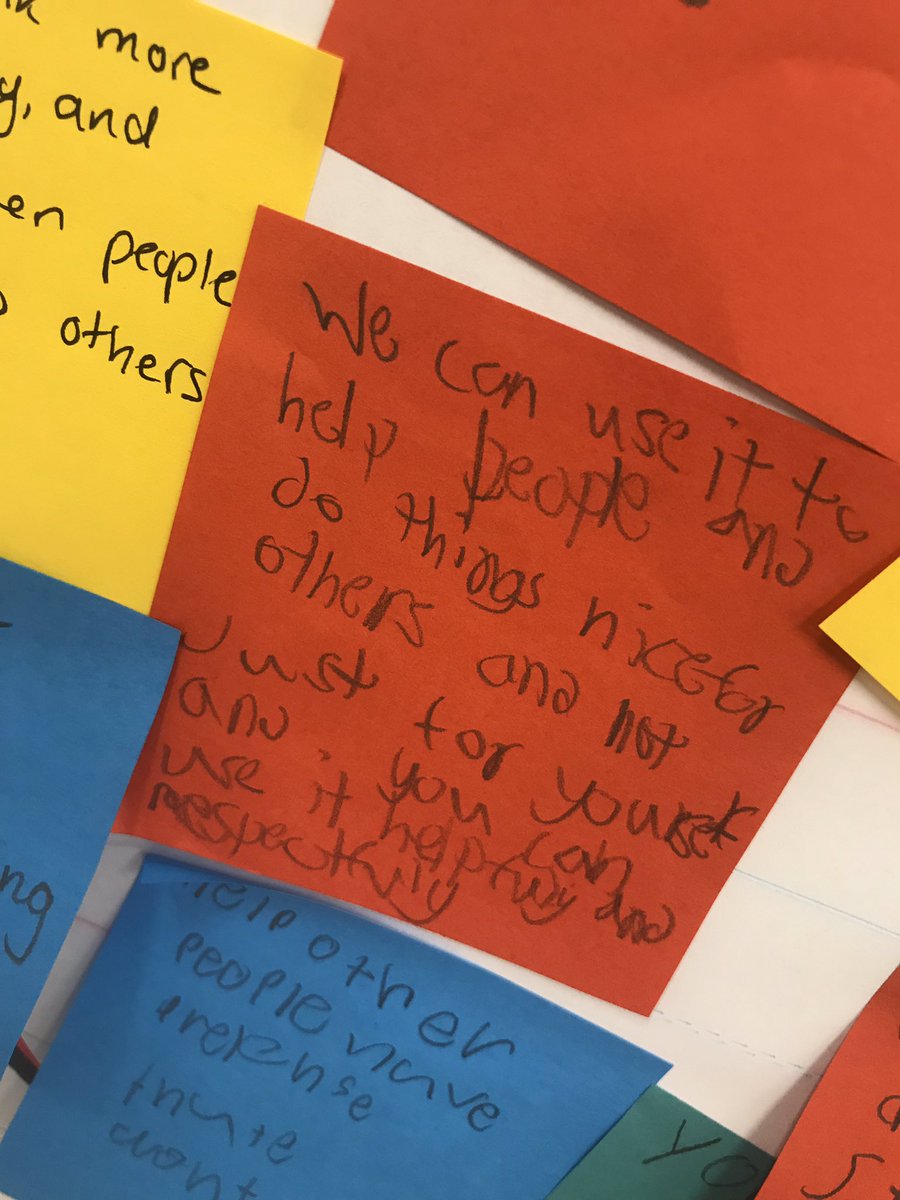 more
y, and
en people
others
We can use it to
help people and
do things nice for
others and not
Just for yourself
and you can
use it helpfuly and
respectfuly
ng
help other
people have
thute
dont
yo